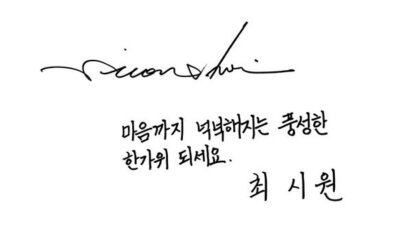 마음까지 넉넉해지는 풍성한
한가위 되세요.
최 시 원